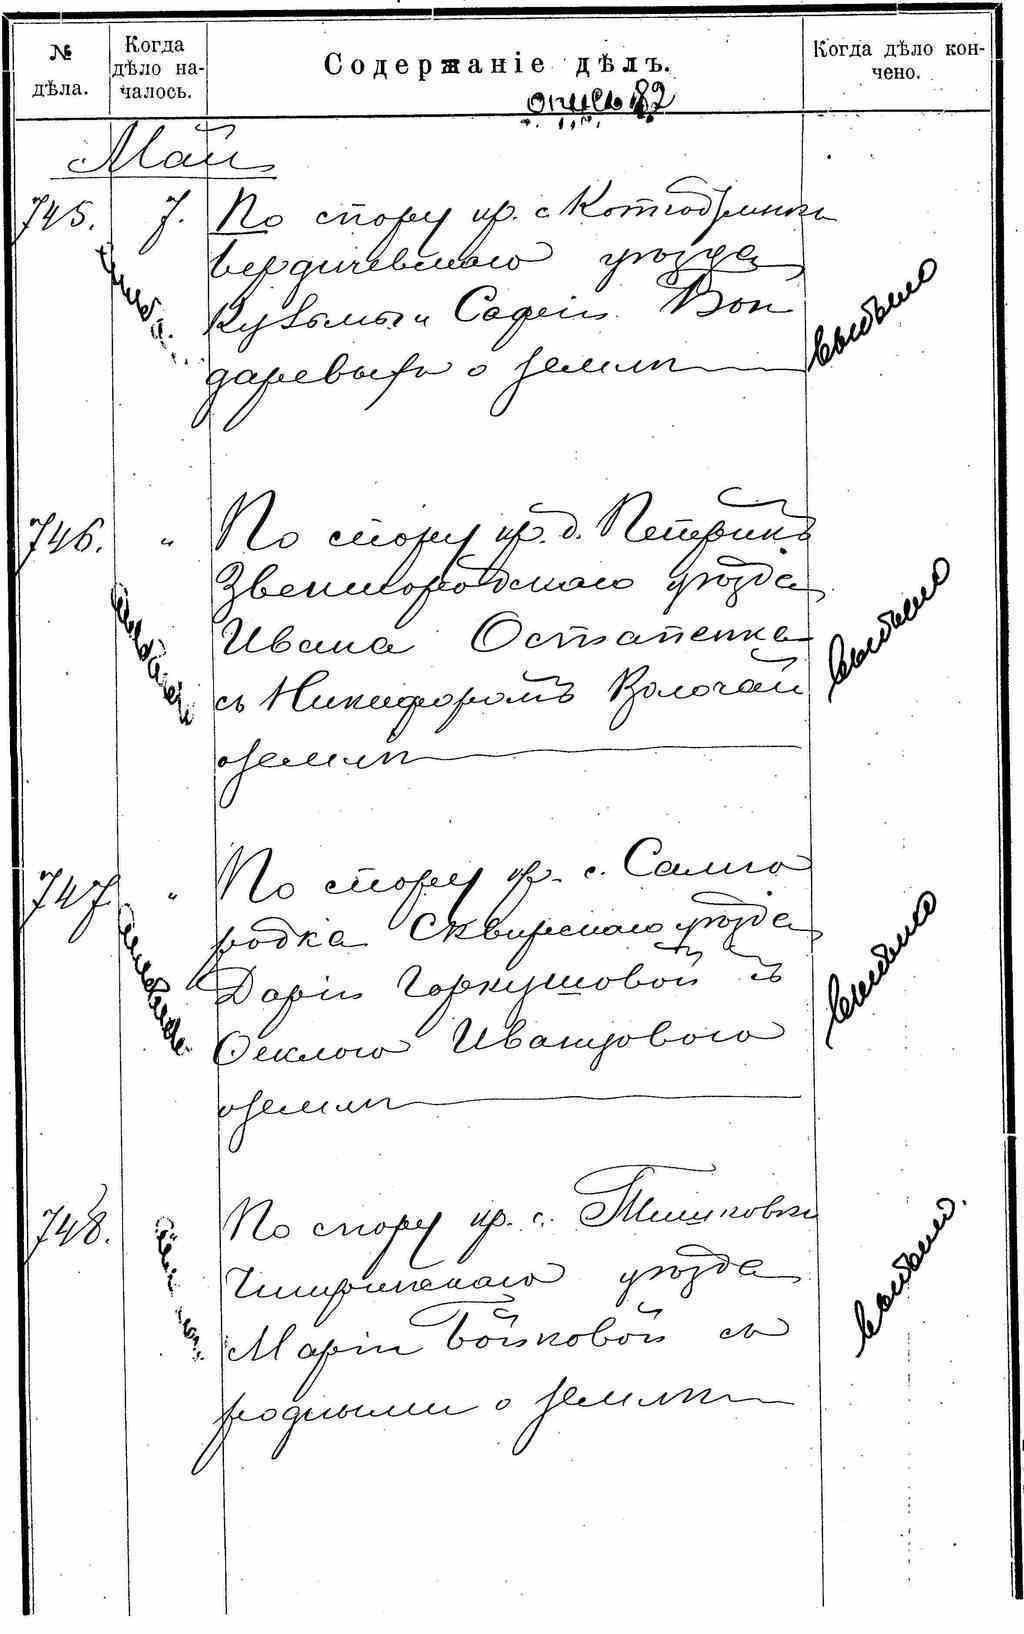 № дѣла.
Когда дѣло на-
чалось.
Содержаніе дѣлъ.
Когда дѣло кон-
чено.
опись 82
Май
745. 7. По спору кр. с.
Бердичевскаго уѣзда
Кузьмы и Софіи Бон
даревыхъ о землѣ
выбыло
746. " По спору кр. д. Петрикъ
Звенигородскаго уѣзда
Ивана Остапенка
съ Никифоромъ Волочай
о землѣ
выбыло
747. " По спору кр. с. Самго
родка Сквирскаго уѣзда
Даріи Горкушовой съ
Феклою Иванцовою
о землѣ
выбыло
748. По спору кр. с. Тишковки
Чигиринскаго уѣзда
Маріи Бойковой съ
родными о землѣ
выбыло.